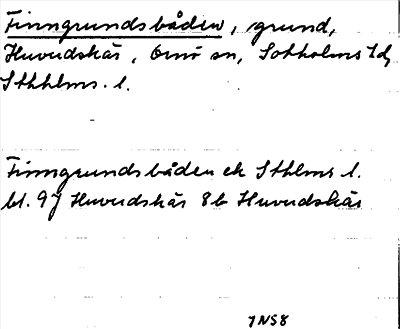 Finngrundsbåden, grund,
Huvudskär, Ornö sn, Sotholms hd,
Sthhlms. l.
Finngrundsbåden ek Sthlms l.
bl. 97 Huvudskär 8b Huvudskär
JNS8